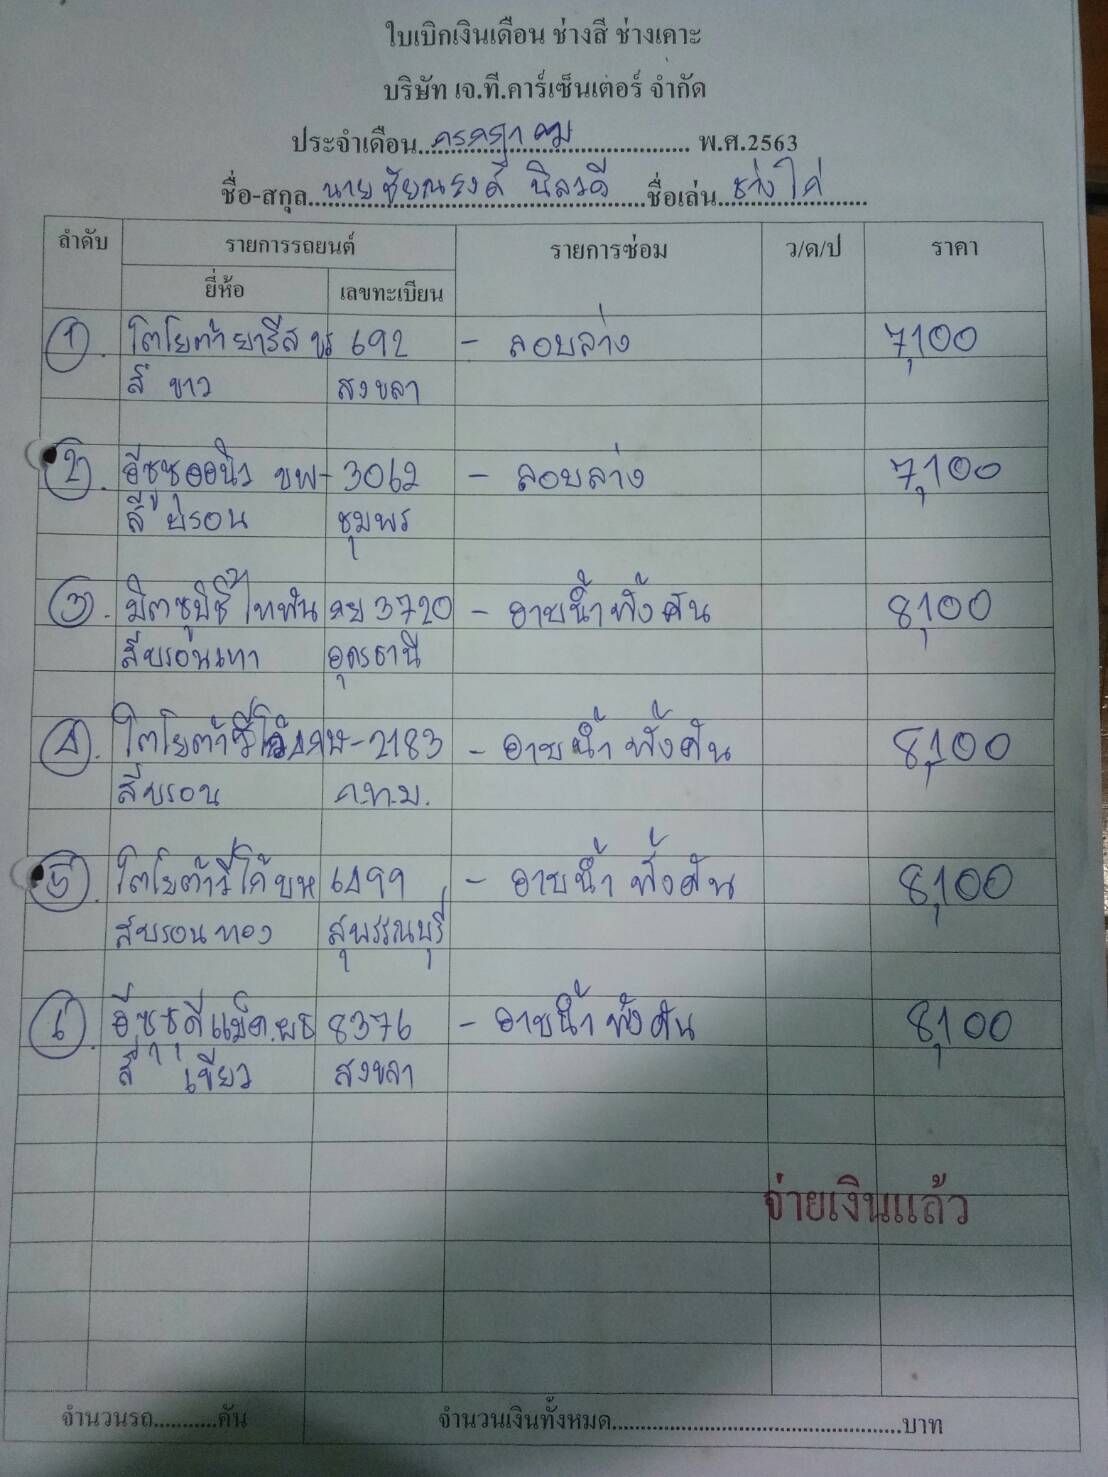 ใบเบิกเงินเดือน ช่างสี ช่างเคาะ
บริษัท เจ.ที.คาร์เซ็นเตอร์ จำกัด
ประจำเดือน กรกฎาคม พ.ศ.2563
ชื่อ-สกุล นายชัยณรงค์ นิลวดี ชื่อเล่น ช่างไก่
ลำดับ รายการรถยนต์ รายการซ่อม ว/ด/ป ราคา
ยี่ห้อ เลขทะเบียน
1. โตโยต้า ยารีส ขร 692 - ลอบล่าง 7,100
สี ขาว สงขลา
2. อีซูซุออนิว ขพ-3062 - ลอบล่าง 7,100
สี บรอน ชุมพร
3. มิตซูบิชิ ไททัน 3720 - อาบน้ำทั้งคัน 8,100
สีบรอนเทา อุดรธานี
4. โตโยต้าวีโก้ -2183 - อาบน้ำทั้งคัน 8,100
สีบรอน ก.ท.ม.
5. โตโยต้าวีโก้ บห 6499 - อาบน้ำทั้งคัน 8,100
สีบรอนทอง สุพรรณบุรี
6. อีซูซุดีแม็ค ผธ 8376 - อาบน้ำทั้งคัน 8,100
สี เขียว สงขลา
จ่ายเงินแล้ว
จำนวนรถ..........คัน จำนวนเงินทั้งหมด..........บาท